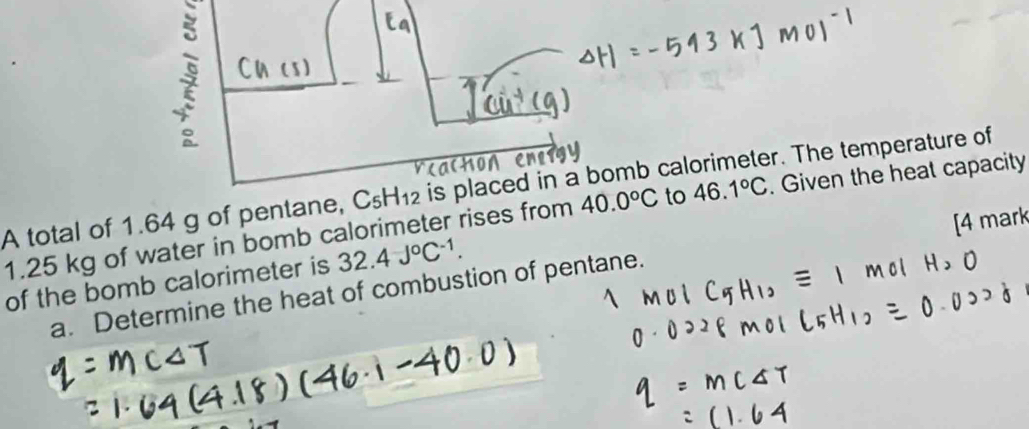 potential ener
Ea
Cu (s)
ΔH = -593 KJ mol⁻¹
Cu⁺ (g)
reaction energy
A total of 1.64 g of pentane, C₅H₁₂ is placed in a bomb calorimeter. The temperature of
1.25 kg of water in bomb calorimeter rises from 40.0°C to 46.1°C. Given the heat capacity
of the bomb calorimeter is 32.4 J°C⁻¹.
[4 mark
a. Determine the heat of combustion of pentane.
1 mol C5H12 ≡ 1 mol H2O
0.0228 mol C5H12 ≡ 0.0228
q = mcΔT
= 1.64 (4.18) (46.1 - 40.0)
q = mcΔT
= (1.64